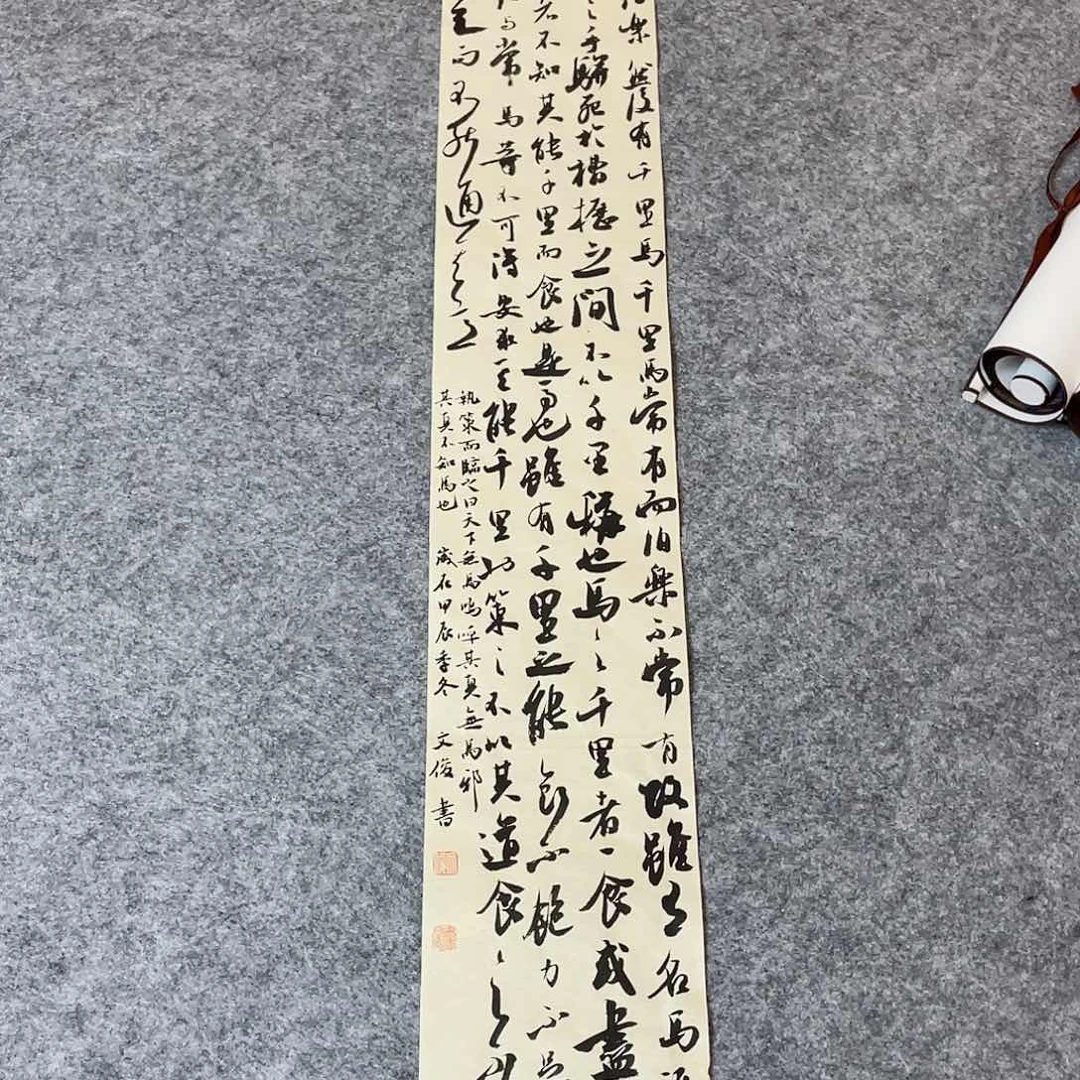 樂然後有千里馬千里馬常有而伯樂不常有故雖有名馬
之手駢死於槽櫪之間不以千里稱也馬之千里者一食或盡
者不知其能千里而食也是馬也雖有千里之能食不飽力不足
與常馬等不可得安求其能千里也策之不以其道食之不
之而不能通其意
執策而臨之曰天下無馬嗚呼其真無馬邪
其真不知馬也 歲在甲辰季冬 文俊書